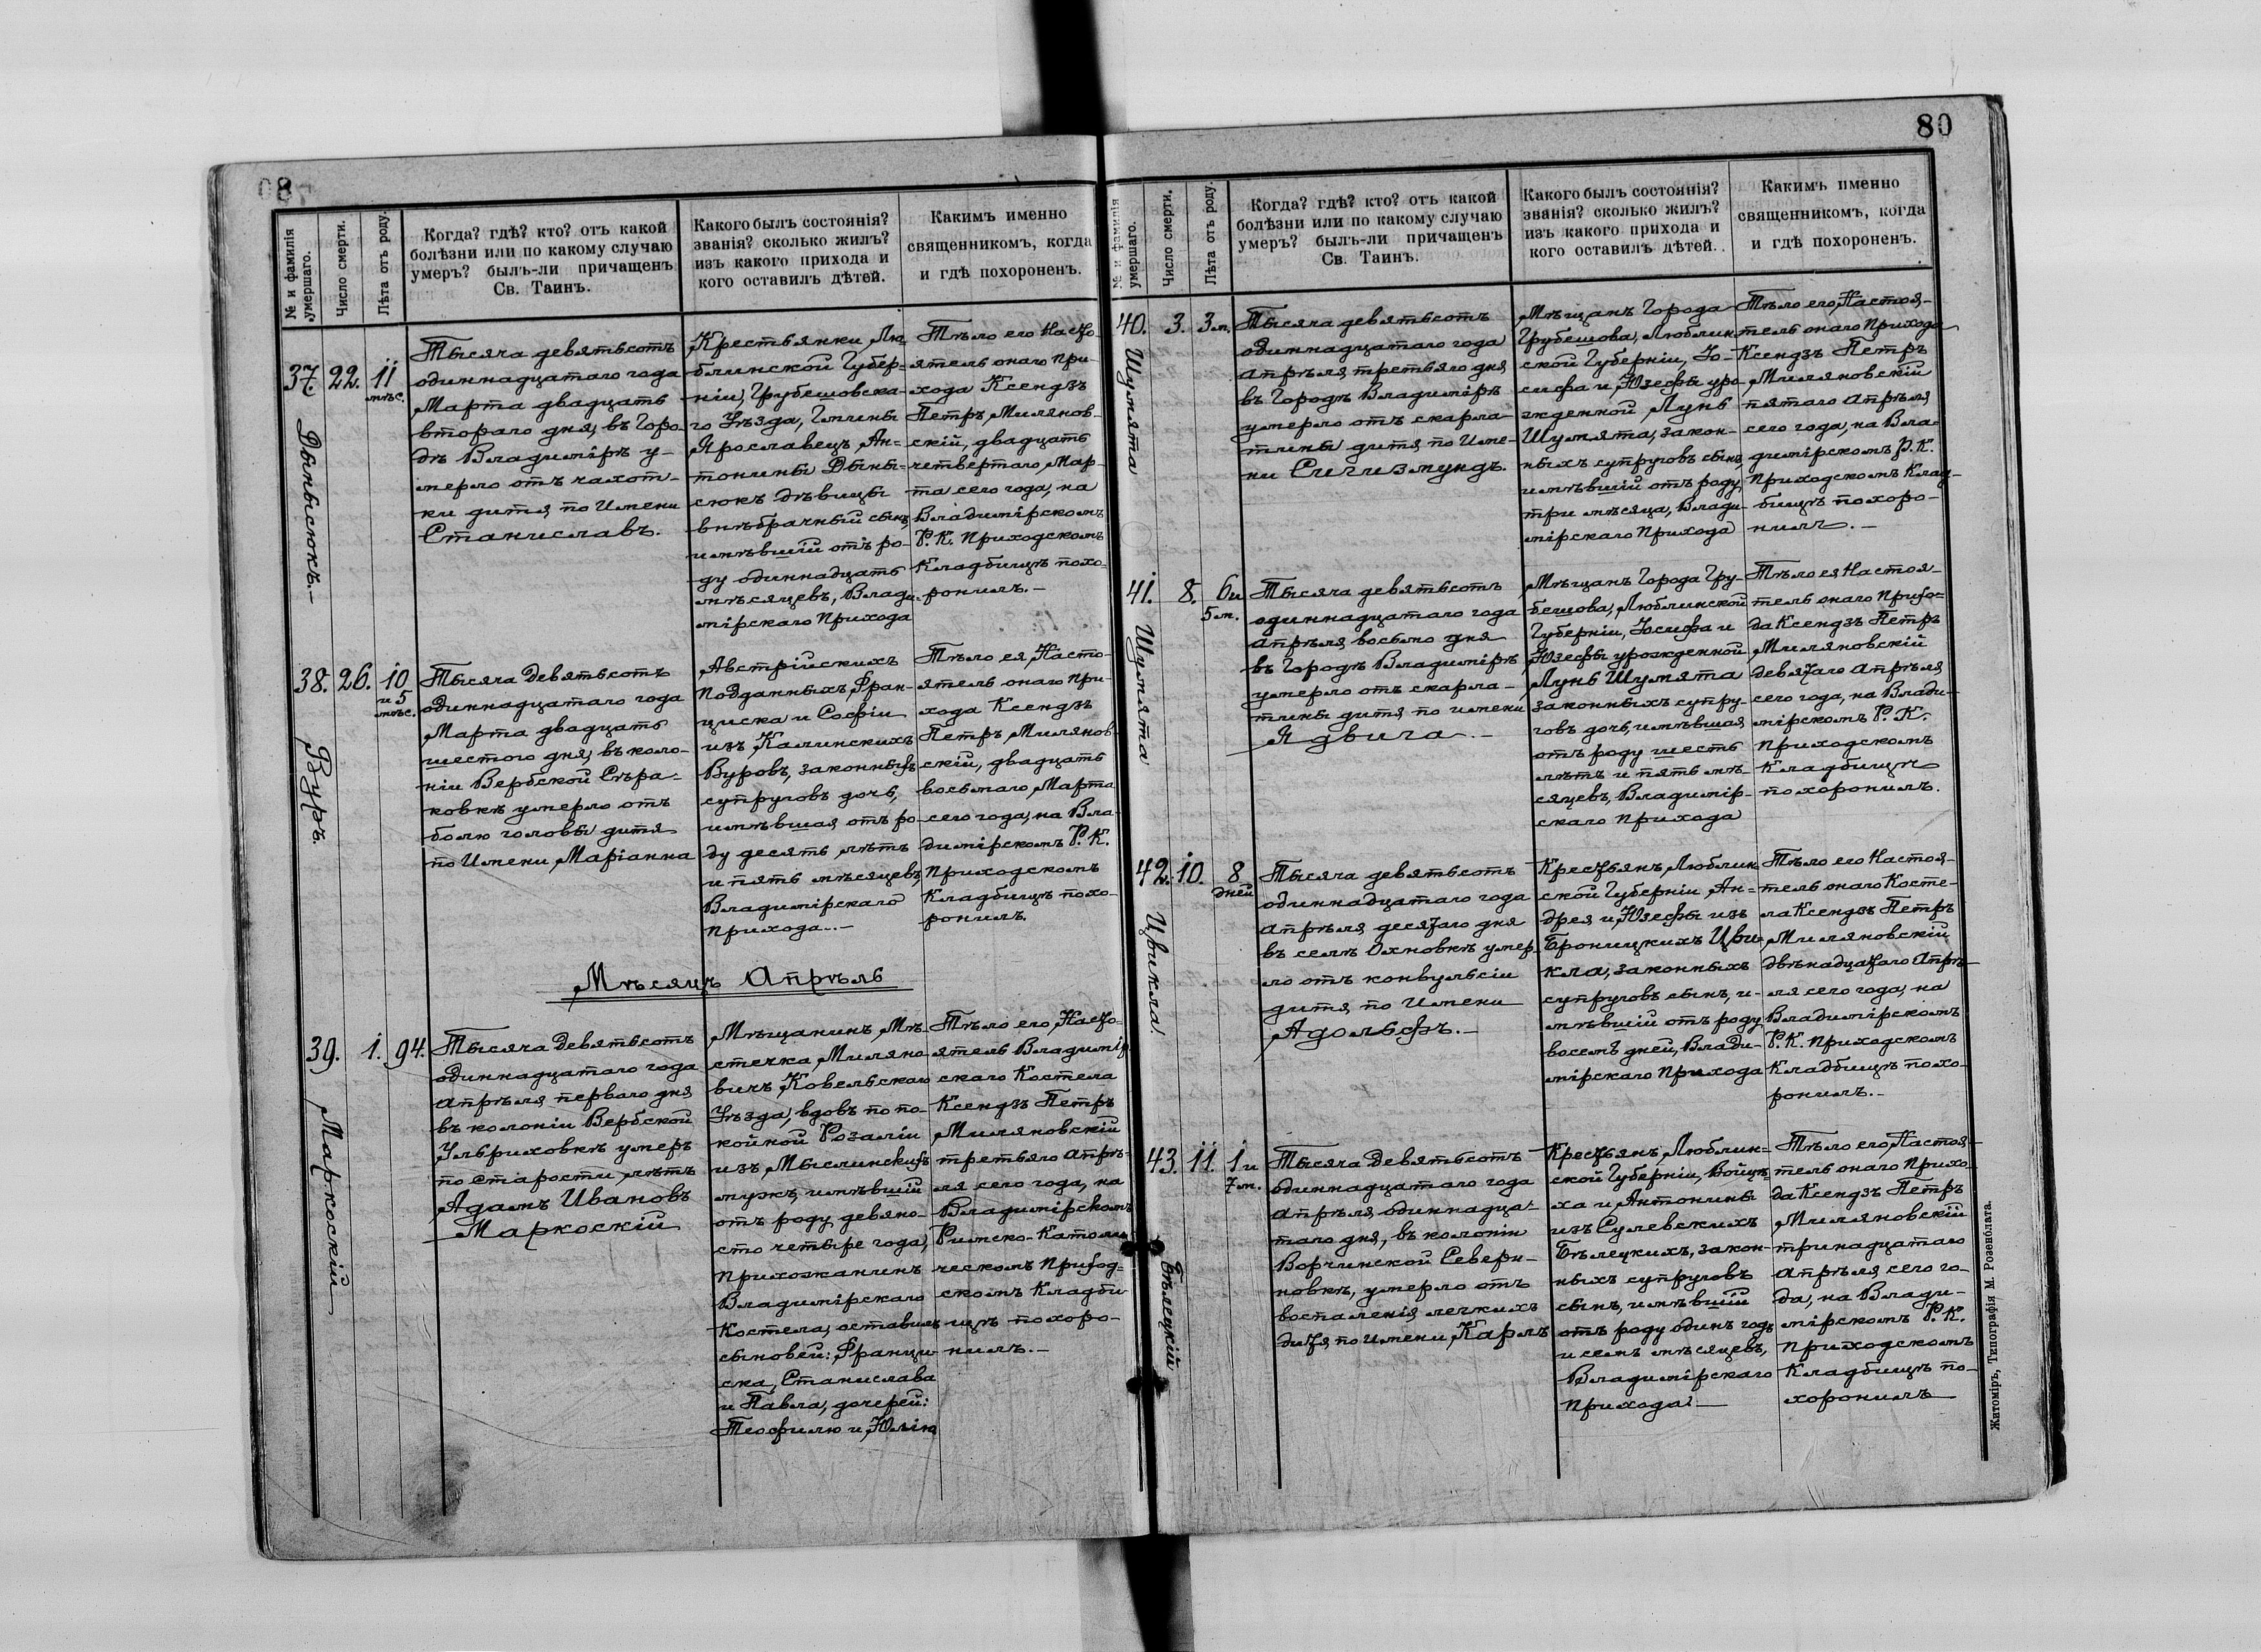 80
№ и фамилія умершаго.
Число смерти.
Лѣта отъ роду.
Когда? гдѣ? кто? отъ какой
болѣзни или по какому случаю
умеръ? былъ-ли причащенъ
Св. Таинъ.
Какого былъ состоянія?
званія? сколько жилъ?
изъ какого прихода и
кого оставилъ дѣтей.
Какимъ именно
священникомъ, когда
и гдѣ похороненъ.
37.
22.
11
мѣс.
Дынысюкъ.—
Тысяча девятьсотъ
одиннадцатаго года
Марта двадцать
втораго дня, въ Горо-
дѣ Владимірѣ у-
мерло отъ чахот-
ки дитя, по Имени
Станиславъ.
Крестьянки, Лю-
блинской Губер-
ніи, Грубешовска-
го Уѣзда, Гмины
Ярославецъ, Ан-
тонины Дыны-
сюкъ дѣвицы
внѣбрачный сынъ,
имѣвшій отъ ро-
ду одиннадцать
мѣсяцевъ, Влади-
мірскаго Прихода
Тѣло его Насто-
ятель онаго При-
хода Ксендзъ
Петръ Милянов-
скій, двадцать
четвертаго Мар-
та сего года, на
Владимірскомъ
Р. К. Приходскомъ
Кладбищѣ похо-
ронилъ.—
38.
26.
10
и 5
мѣс.
Вуръ.
Тысяча Девятьсотъ
одиннадцатаго года
Марта двадцать
шестого дня, въ коло-
ніи Вербской Сѣра-
ковкѣ умерло отъ
болю головы дитя
по Имени Маріанна
Австрійскихъ
Подданныхъ Фран-
циска и Софіи
изъ Калинскихъ
Вуровъ, законныхъ
супруговъ дочь,
имѣвшая отъ ро-
ду десять лѣтъ
и пять мѣсяцевъ,
Владимірскаго
Прихода..—
Тѣло ея, Насто-
ятель онаго При-
хода Ксендзъ
Петръ Милянов-
скій, двадцать
восьмаго Марта
сего года, на Вла-
димірскомъ Р. К.
Приходскомъ
Кладбищѣ похо-
ронилъ.
Мѣсяцъ Апрѣль
39.
1.
94.
Маркоскій
Тысяча Девятьсотъ
одиннадцатаго года
Апрѣля перваго дня
въ колоніи Вербской
Ульриховкѣ умеръ
по старости лѣтъ
Адамъ Ивановъ
Маркоскій
Мѣщанинъ, Мѣ-
стечка Миляно-
вичъ, Ковельскаго
Уѣзда, вдовъ по по-
койной Розаліи
изъ Мыслинскихъ
мужъ, имѣвшій
отъ роду девяно-
сто четыре года,
Прихожанинъ
Владимірскаго
Костела, оставилъ
сыновей: Францы-
ска, Станислава
и Павла, дочерей:
Теофилю и Юлію
Тѣло его, Насто-
ятель Владимір-
скаго Костела
Ксендзъ Петръ
Миляновскій
третьяго Апрѣ-
ля сего года, на
Владимірскомъ
Римско-Католи-
ческомъ Приход-
скомъ Кладби-
щѣ похоро-
нилъ.—
80
№ и фамилія умершаго.
Число смерти.
Лѣта отъ роду.
Когда? гдѣ? кто? отъ какой
болѣзни или по какому случаю
умеръ? былъ-ли причащенъ
Св. Таинъ.
Какого былъ состоянія?
званія? сколько жилъ?
изъ какого прихода и
кого оставилъ дѣтей.
Какимъ именно
священникомъ, когда
и гдѣ похороненъ.
40.
3.
3 м.
Шумята
Тысяча девятьсотъ
одиннадцатаго года
Апрѣля, третьяго дня
въ Городѣ Владимірѣ
умерло отъ скарла-
тины дитя, по Име-
ни Сигизмундъ.
Мѣщанъ Города
Грубешова, Люблин-
ской Губерніи, Іо-
сифа и Юзефы уро-
жденной Лунь
Шумята, закон-
ныхъ супруговъ сынъ,
имѣвшій отъ роду
три мѣсяца, Влади-
мірскаго Прихода
Тѣло его, Настоя-
тель онаго Прихода
Ксендзъ Петръ
Миляновскій
пятаго Апрѣля
сего года, на Вла-
димірскомъ Р. К.
Приходскомъ Клад-
бищѣ похоро-
нилъ.—
41.
8.
6 и
5 м.
Шумята
Тысяча девятьсотъ
одиннадцатаго года
Апрѣля восьмо дня
въ Городѣ Владимірѣ
умерло отъ скарла-
тины дитя по имени
Ядвига.—
Мѣщанъ Города Гру-
бешова, Люблинской
Губерніи, Іосифа и
Юзефы урожденной
Лунь Шумята
законныхъ супру-
говъ дочь, имѣвшая
отъ роду шесть
лѣтъ и пять мѣ-
сяцевъ, Владимір-
скаго Прихода
Тѣло ея Настоя-
тель онаго Прихо-
да Ксендзъ Петръ
Миляновскій
девятаго Апрѣля
сего года, на Влади-
мірскомъ Р. К.
Приходскомъ
Кладбищѣ
похоронилъ.
42.
10.
8
дней
Цвикла.
Тысяча девятьсотъ
одиннадцатаго года
Апрѣля десятаго дня
въ селѣ Охновкѣ умер-
ло отъ конвульсіи
дитя, по Имени
Адольфъ.—
Крестьянъ, Люблин-
ской Губерніи, Ан-
дрея и Юзефы изъ
Броницкихъ Цви-
кла, законныхъ
супруговъ сынъ, и-
мѣвшій отъ роду
восемь дней, Влади-
мірскаго Прихода
Тѣло его Настоя-
тель онаго Косте-
ла Ксендзъ Петръ
Миляновскій
двѣнадцатаго Апрѣ-
ля сего года, на
Владимірскомъ
Р. К. Приходскомъ
Кладбищѣ похо-
ронилъ.—
43.
11.
1 и
7 м.
Бѣлецкій
Тысяча Девятьсотъ
одиннадцатаго года
Апрѣля одиннадца-
таго дня, въ колоніи
Ворчинской Севери-
новкѣ, умерло отъ
воспаленія легкихъ
дитя, по Имени Карлъ
Крестьянъ, Люблин-
ской Губерніи, Войцѣ-
ха и Антонины
изъ Сулевскихъ
Бѣлецкихъ, закон-
ныхъ супруговъ
сынъ, имѣвшій
отъ роду одинъ годъ
и семь мѣсяцевъ,
Владимірскаго
Прихода.—
Тѣло его, Настоя-
тель онаго Прихо-
да Ксендзъ Петръ
Миляновскій
тринадцатаго
Апрѣля сего го-
да, на Влади-
мірскомъ Р. К.
Приходскомъ
Кладбищѣ по-
хоронилъ
Житоміръ, Типографія М. Розенблата.